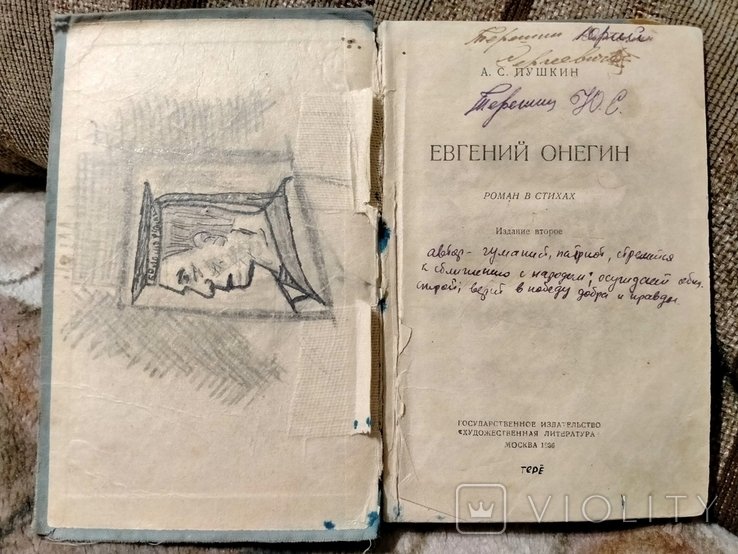 Терешин Юрий
Сергеевич
А. С. ПУШКИН
Терешин Ю.С.
ЕВГЕНИЙ ОНЕГИН
РОМАН В СТИХАХ
Издание второе
автор - гуманист, патриот, стремится
к сближению с народом; осуждает
строй; верит в победу добра и правды
ГОСУДАРСТВЕННОЕ ИЗДАТЕЛЬСТВО
ХУДОЖЕСТВЕННАЯ ЛИТЕРАТУРА
МОСКВА 1936
ТЕРЁ
VIOLITY